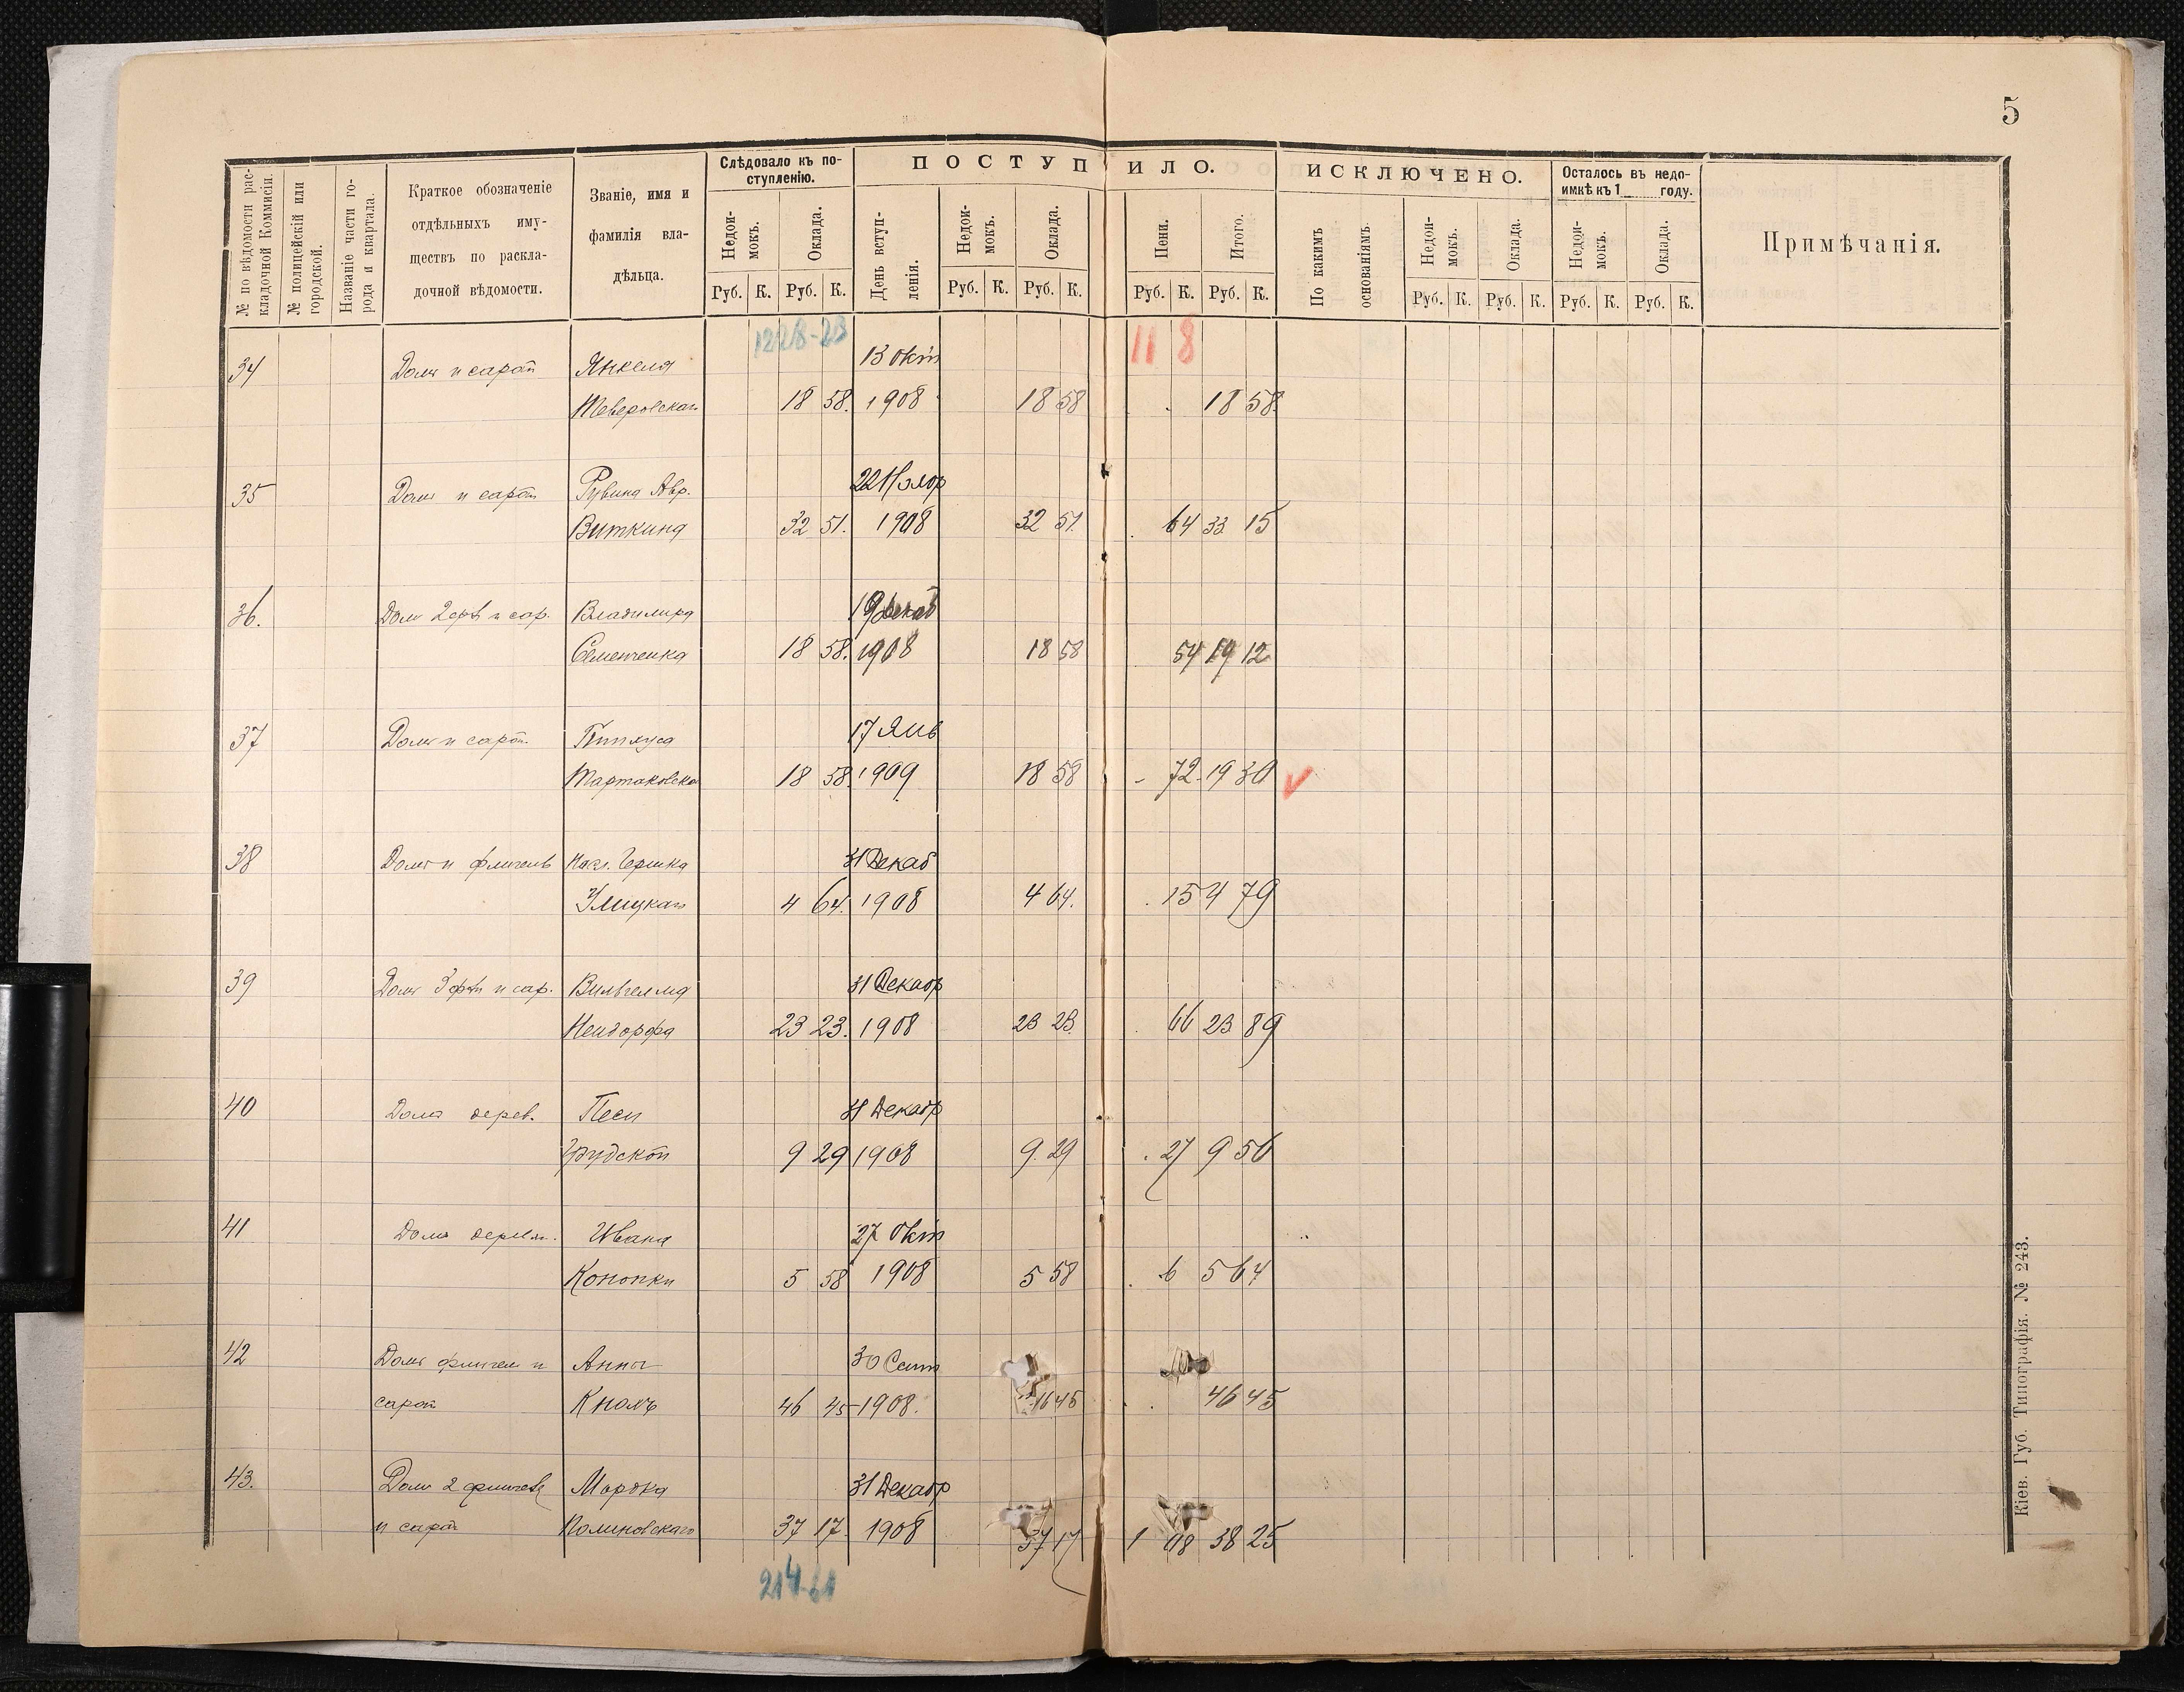 5
№ по вѣдомости рас-
кладочной Коммисіи.
№ полицейскій или
городской.
Названіе части го-
рода и квартала.
Краткое обозначеніе
отдѣльныхъ иму-
ществъ по раскла-
дочной вѣдомости.
Званіе, имя и
фамилія вла-
дѣльца.
Слѣдовало къ по-
ступленію.
Недои-
мокъ.
Оклада.
Руб. К. Руб. К.
ПОСТУПИЛО.
День вступ-
ленія.
Недои-
мокъ.
Оклада.
Пени.
Итого.
Руб. К. Руб. К. Руб. К. Руб. К.
ИСКЛЮЧЕНО.
По какимъ
основаніямъ.
Недои-
мокъ.
Оклада.
Руб. К. Руб. К.
Осталось въ недо-
имкѣ къ 1 году.
Недои-
мокъ.
Оклада.
Руб. К. Руб. К.
Примѣчанія.
1228-23 11 8
34 Домъ и сарай Янкеля 13 Окт
18 58. 1908 18 58 18 58.
35 Домъ и сарай Рувина Авр. 22 Ноябр
Виткина 32 51. 1908 32 51. 64 33 15
36. Домъ 2 фл и сар. Владимира 19 Декаб
Семенченка 18 58. 1908 18 58 54 19 12
37 Домъ и сарай Пинхуса 17 Янв
18 58. 1909 18 58 - 72 19 30
38 Домъ и флигель Насл. Гершка 31 Декаб
4 64. 1908 4 64. 15 4 79
39 Домъ 3 фл и сар. Вильгельма 31 Декабр
Нейдорфа 23 23. 1908 23 23. 66 23 89
40 Домъ дерев. Песи 31 Декабр
Грудской 9 29 1908 9 29 27 9 56
41 Домъ дерев. Ивана 27 Окт
Конопки 5 58 1908 5 58 6 5 64
42 Домъ флигел и Анны 30 Сент
сарай 46 45 1908. 46 45 46 45
43. Домъ 2 флигеля Мордка 31 Декабр
и сарай Полиновскаго 37 17. 1908 37 17 1 08 38 25
214-61
Кіев. Губ. Типографія. № 243.